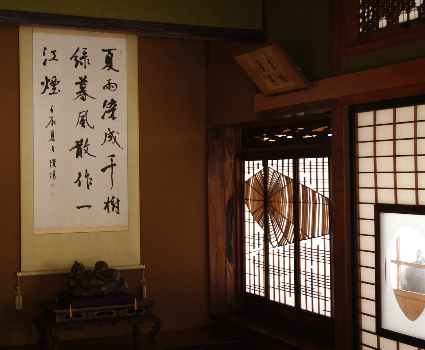 夏雨染成千樹
緑暮嵐散作一
江煙
壬辰夏日